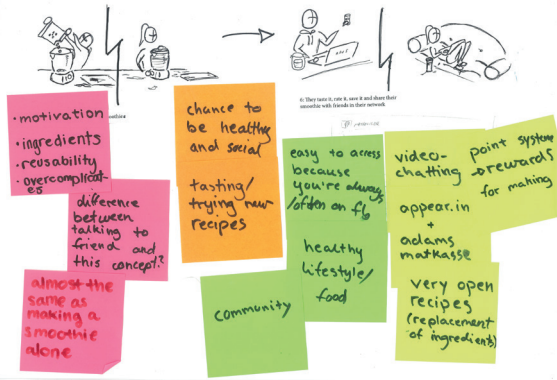 6: They taste it, rate it, save it and share their
smoothie with friends in their network
• motivation
• ingredients
• reusability
• overcomplicat-
es
difference
between
talking to
friend and
this concept?
almost the
same as
making a
smoothie
alone
chance to
be healthy
and social
tasting/
trying new
recipes
easy to access
because
you're always
/often on fb
healthy
lifestyle/
food
community
video-
chatting
appear.in
+
adams
matkasse
very open
recipes
(replacement
of ingredients)
point system
→ rewards
for making